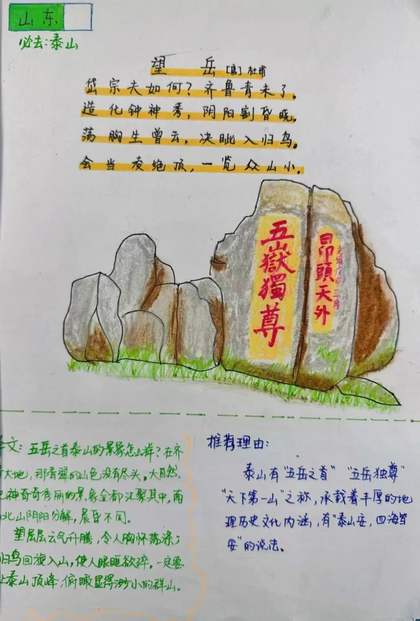 山东
必去:泰山
望 岳 [唐] 杜甫
岱宗夫如何?齐鲁青未了。
造化钟神秀,阴阳割昏晓。
荡胸生曾云,决眦入归鸟。
会当凌绝顶,一览众山小。
五嶽獨尊
昂頭天外
文:五岳之首泰山的景象怎么样?在齐
大地,那青翠的山色没有尽头。大自然
神奇奇秀丽的景象全都汇聚其中,南
北山阴阳分解,晨昏不同。
望层层云气升腾,令人胸怀荡涤,
归鸟回旋入山,使人眼眶欲碎。一定要
泰山顶峰,俯瞰显得渺小的群山。
推荐理由:
泰山有"五岳之首""五岳独尊"
"天下第一山"之称,承载着丰厚的地
理历史文化内涵,有"泰山安,四海皆
安"的说法。